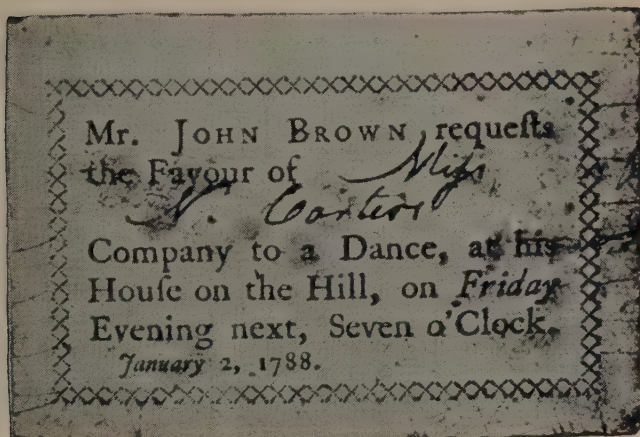 Mr. JOHN BROWN requeſts
the Favour of Miſs
N. Carters
Company to a Dance, at his
Houſe on the Hill, on Friday
Evening next, Seven o'Clock.
January 2, 1788.